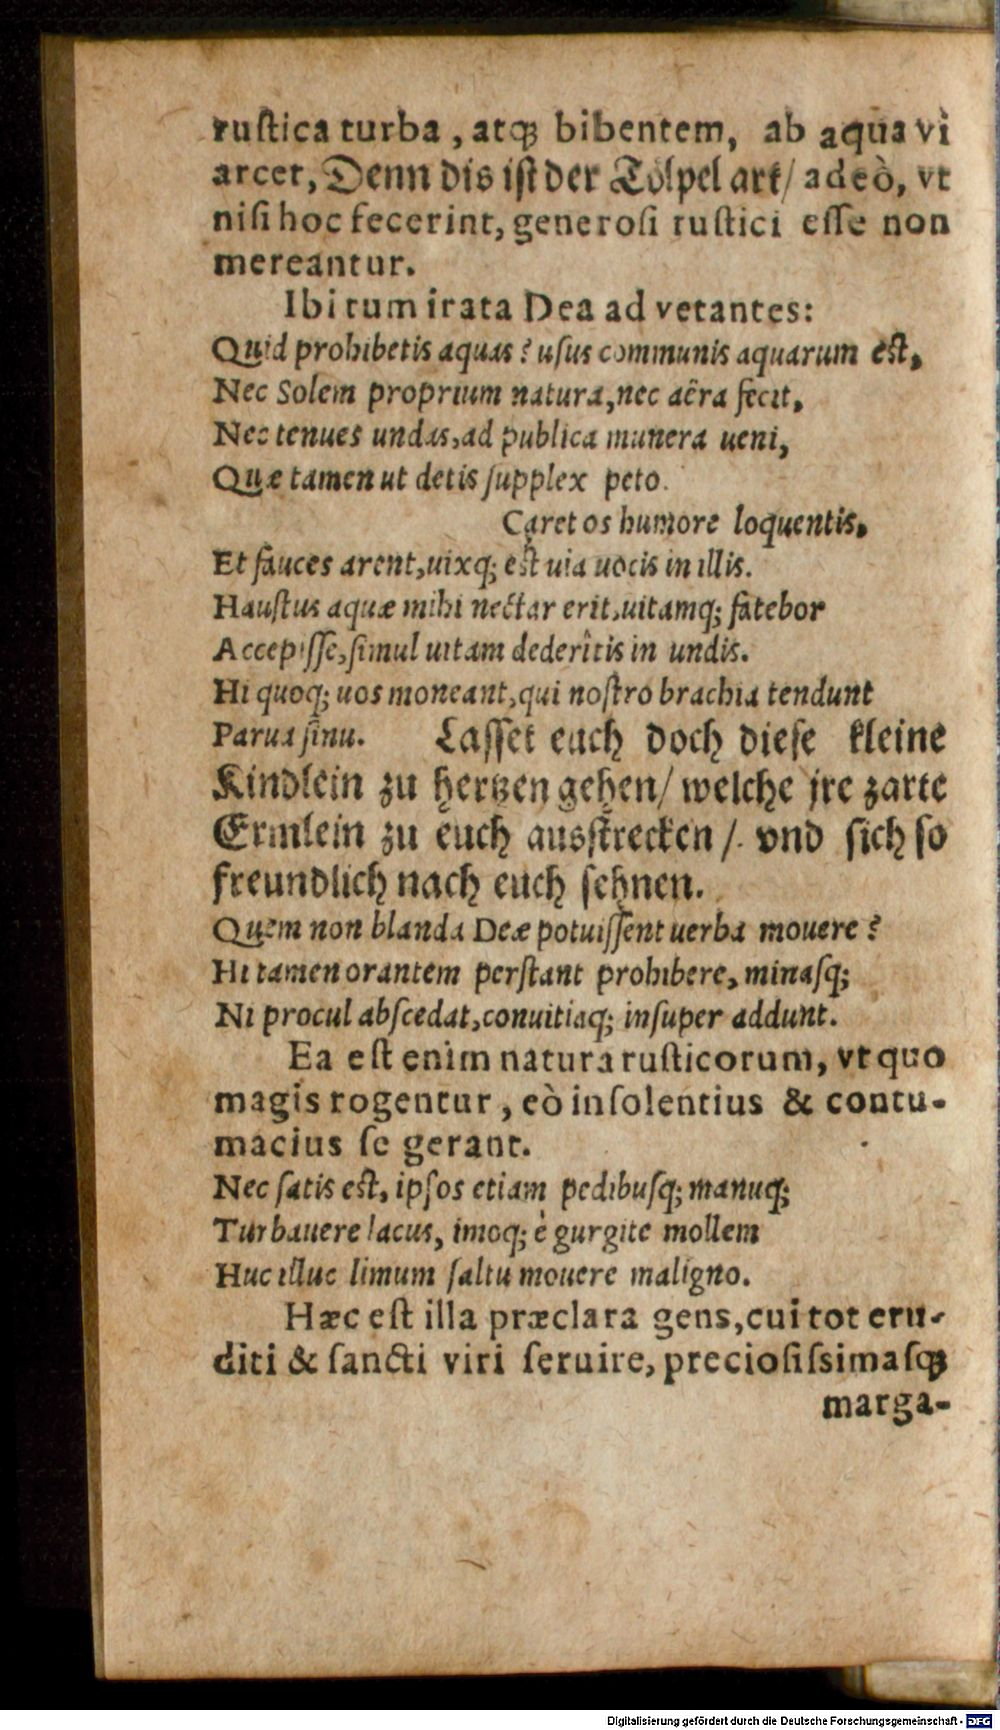 ruſtica turba, atqꝫ bibentem, ab aqua vì
arcet, Denn dis iſt der Tölpel art/ adeò, vt
niſi hoc fecerint, generoſi ruſtici eſſe non
mereantur.
Ibi tum irata Dea ad vetantes:
Quid prohibetis aquas? uſus communis aquarum eſt,
Nec Solem proprium natura, nec aëra fecit,
Nec tenues undas, ad publica munera ueni,
Quæ tamen ut detis ſupplex peto.
Caret os humore loquentis,
Et fauces arent, uixq; eſt uia uocis in illis.
Hauſtus aquæ mihi nectar erit, uitamq; fatebor
Accepiſſe, ſimul uitam dederîtis in undis.
Hi quoq; uos moneant, qui noſtro brachia tendunt
Parua ſinu. Laſſet euch doch dieſe kleine
Kindlein zu hertzen gehen/ welche jre zarte
Ermlein zu euch ausſtrecken/ vnd ſich ſo
freundlich nach euch ſehnen.
Quem non blanda Deæ potuiſſent uerba mouere?
Hi tamen orantem perſtant prohibere, minaſq;
Ni procul abſcedat, conuitiaq; inſuper addunt.
Ea eſt enim natura ruſticorum, vt quo
magis rogentur, eò inſolentius & contu-
macius ſe gerant.
Nec ſatis eſt, ipſos etiam pedibuſq; manuq;
Turbauere lacus, imoq; è gurgite mollem
Huc illuc limum ſaltu mouere maligno.
Hæc eſt illa præclara gens, cui tot eru-
diti & ſancti viri ſeruire, precioſiſsimaſqꝫ
marga-
Digitalisierung gefördert durch die Deutsche Forschungsgemeinschaft - DFG